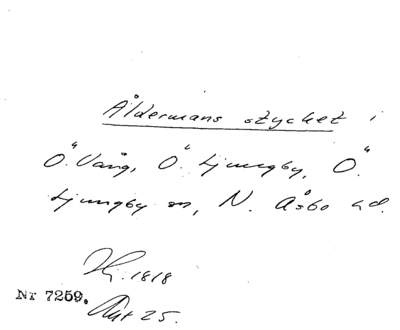 Åldermans stycket i
Ö. Vång, Ö. Ljungby, Ö.
Ljungby sn, N. Åsbo hd.
Hj. 1818
Nr 7259.
Akt 25.